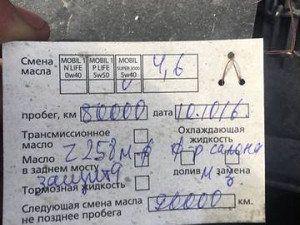 Смена масла
MOBIL 1 N LIFE 0w40
MOBIL 1 P LIFE 5w50
MOBIL SUPER 3000 5w40
4,6
пробег, км 80000 дата 10.10.16
Трансмиссионное масло
Охлаждающая жидкость
Масло в заднем мосту
долив замена
Тормозная жидкость
Следующая смена масла не позднее пробега 90000 км.